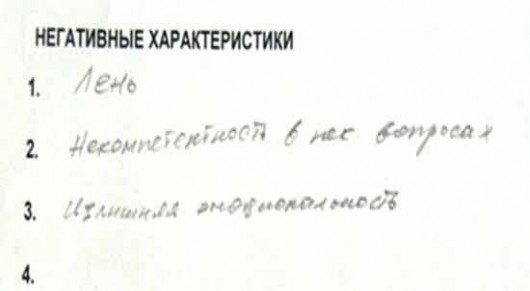 НЕГАТИВНЫЕ ХАРАКТЕРИСТИКИ
1. Лень
2. Некомпетентность в нек. вопросах
3. Излишняя эмоциональность
4.